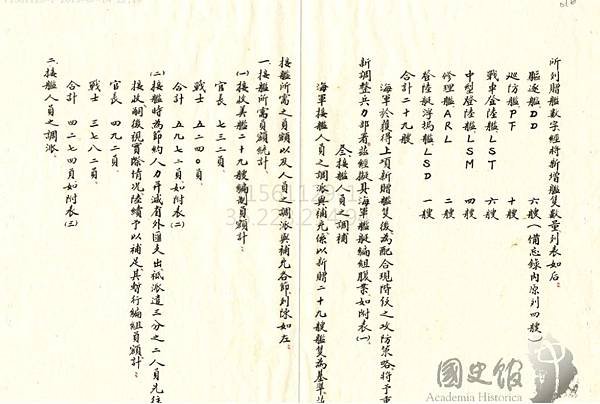 所列贈艦數字經將新增艦隻數量列表如后
驅逐艦DD 六艘(備忘錄內原列四艘)
巡防艦PF 十艘
戰車登陸艦LST 六艘
中型登陸艦LSM 四艘
修理艦ARL 二艘
登陸艇浮塢艦LSD 一艘
合計二十九艘
海軍於獲得上項新贈艦隻後為配合現階段之攻防策略將予重
新調整兵力部署茲經擬具海軍艦艇編組腹案如附表(一)
叁接艦人員之調補
海軍接艦人員之調派與補充係以新贈二十九艘艦隻為基準
接艦所需之員額以及人員之調派與補充各節列陳如左
一、接艦所需員額統計:
(一)接收美艦二十九艘編制員額計:
官長 七三二員
戰士 五二四〇員
合計 五九七二員如附表(二)
(二)接艦時為節約人力并減省外匯支出祇派遣三分之二人員先往
接收嗣後視實際情況陸續予以補足其暫行編組員額計:
官長 四九二員
戰士 三七八二員
合計 四二七四員如附表(三)
二、接艦人員之調派
國史館
Academia Historica